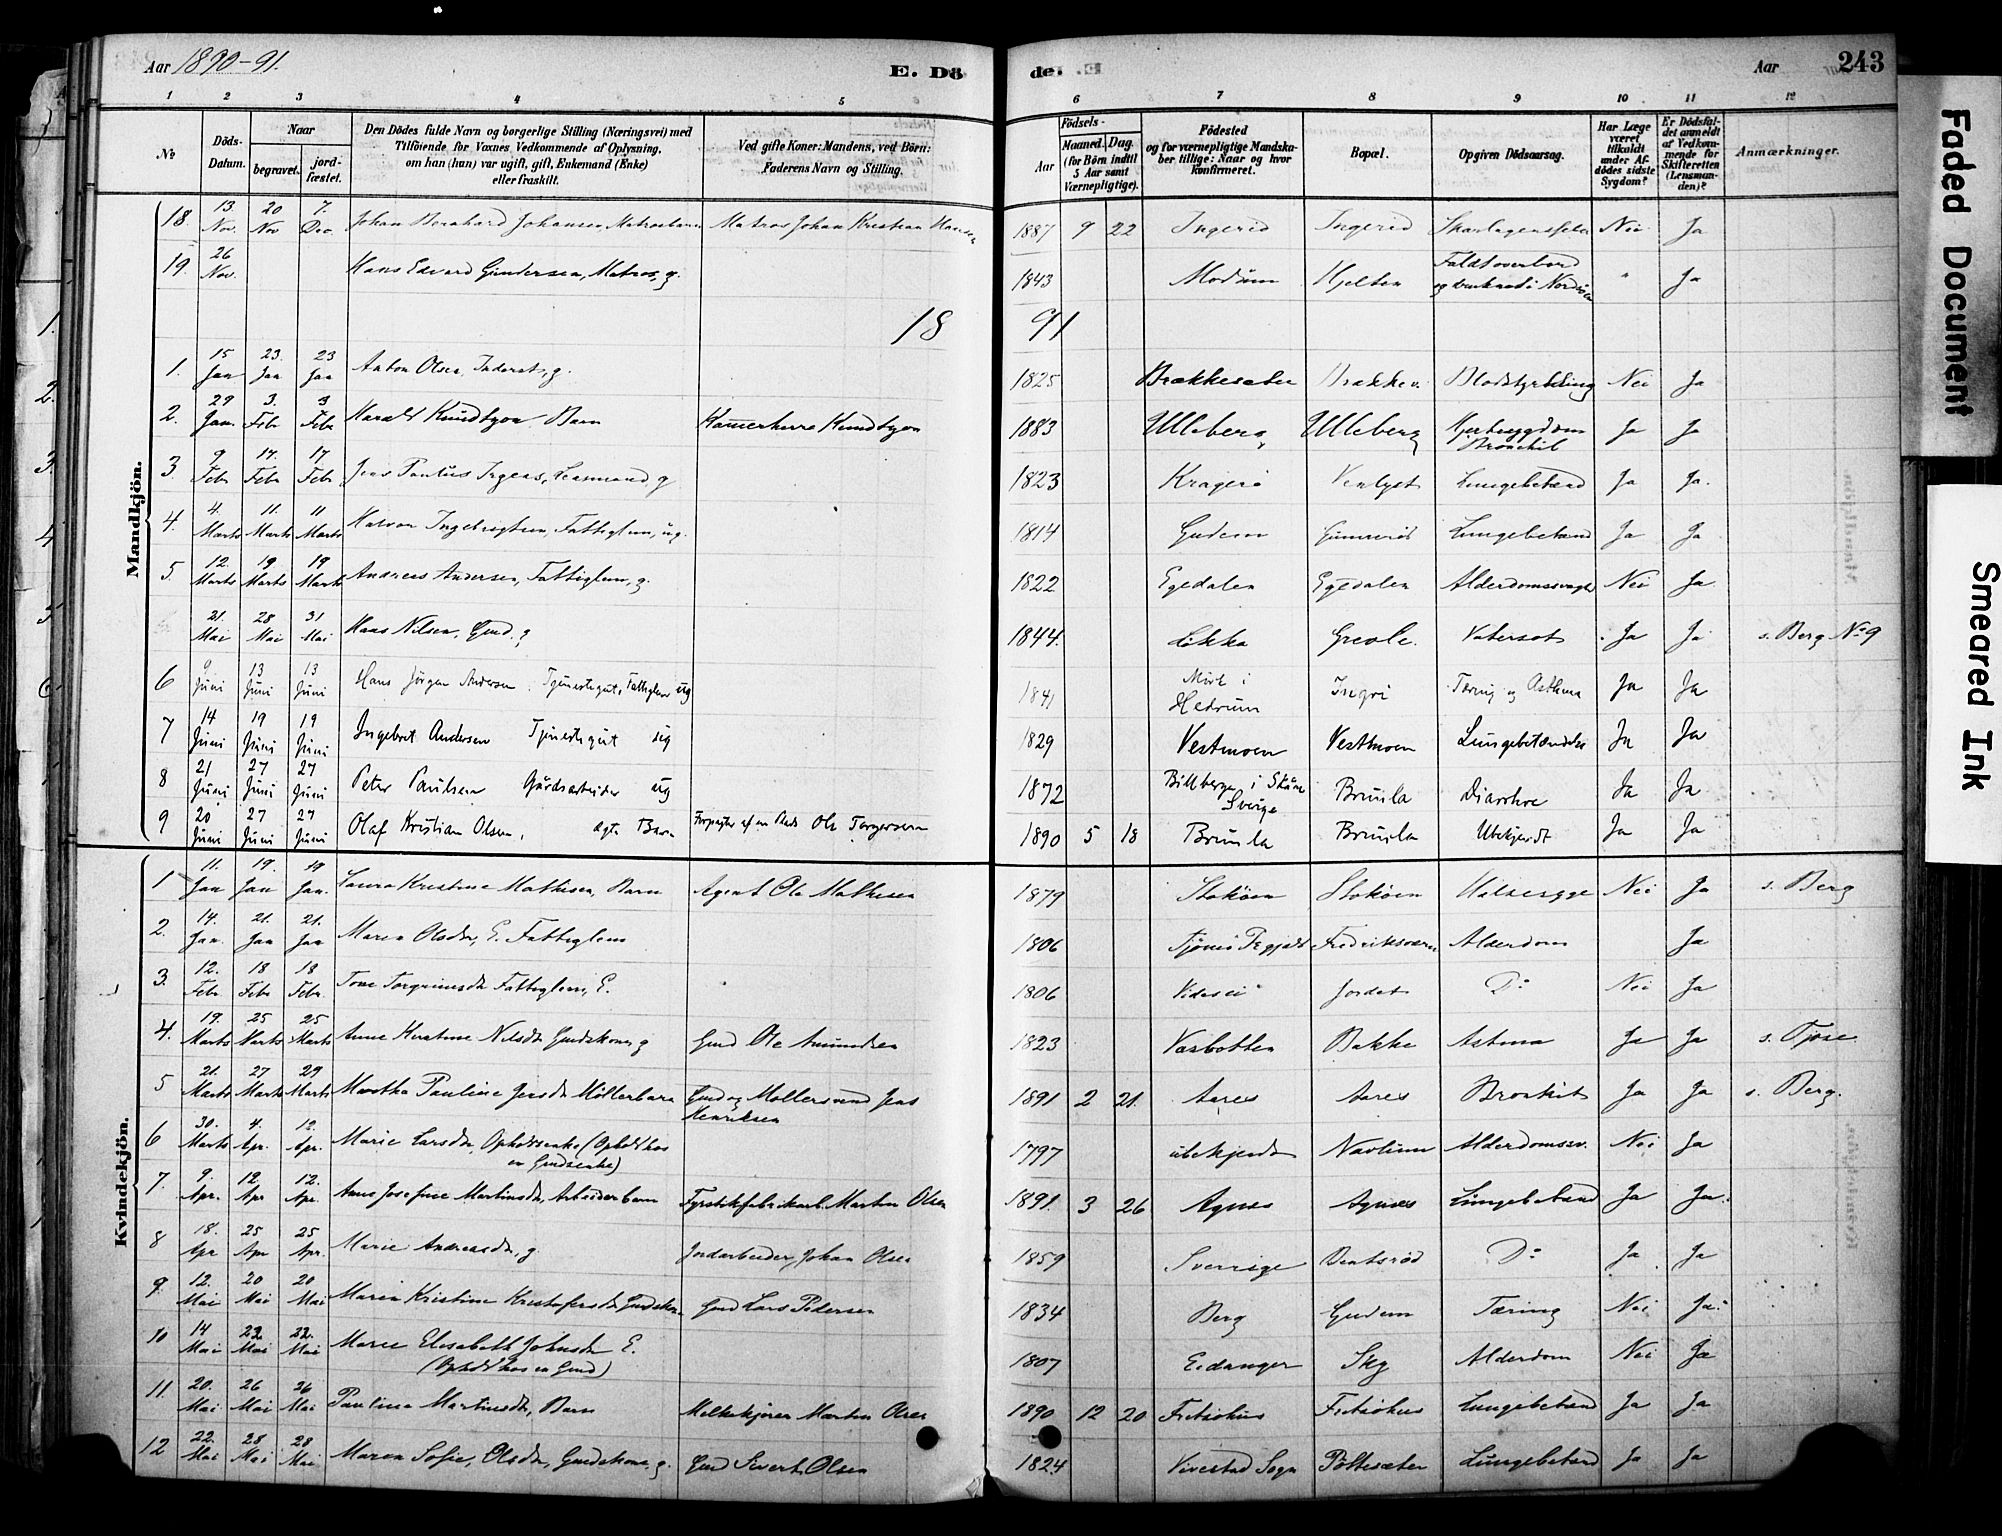 Aar 1890-91.
E. Dö
de. E
Aar
243
1 2 3 4 5 6 7 8 9 10 11 12
No
Döds-Datum.
Naar
begravet.
jord-fæstet.
Den Dödes fulde Navn og borgerlige Stilling (Næringsvei) med
Tilföiende for Voxnes Vedkommende af Oplysning,
om han (hun) var ugift, gift, Enkemand (Enke)
eller fraskilt.
Ved gifte Koner: Mandens, ved Börn:
Faderens Navn og Stilling.
Födsels-
Aar
Maaned. Dag.
(for Börn indtil
5 Aar samt
Værnepligtige).
Födested
og for værnepligtige Mandska-
ber tillige: Naar og hvor
konfirmeret.
Bopæl.
Opgiven Dödsaarsag.
Har Læge
været
tilkaldt
under Af-
dödes sidste
Sygdom?
Er Dödsfal-
det anmeldt
af Vedkom-
mende for
Skifteretten
(Lensman-
den)?
Anmærkninger.
Mandkjön.
18. 13. Nov. 20 Nov 7. Dec. Johan Bernhard Johansen, Matrosbarn Matros Johan Kristian Hansen 1887 9 22 Ingerid Ingerid Skarlagensfeber Nei Ja
19. 26 Nov. Hans Edvard Gundersen, Matros, g. 1843 Modum Hjelten Faldt overbord og druknede i Nordsøen " Ja
18 91
1. 15 Jan 23. Jan 23 Jan Anton Olsen, Inderst, g. 1825 Brækkesæter Brække Blodstyrtning Nei Ja
2. 29 Jan. 3. Febr 3 Febr Harald Knudtzon Barn Kamerherre Knudtzon 1883 Ulleberg Ulleberg Hjertesygdom Bronchit Ja Ja
3 9 Febr 17. Febr 17 Febr Jens Paulus Irgens, Lensmand, g 1823 Kragerø Venlyst Lungebetænd Ja Ja.
4. 4. Marts 11. Marts 11 Marts Halvor Ingebrigtsen, Fattiglem, ug. 1814 Gudem Gunnerød Lungebetænd Ja Ja
5. 12. Marts 19 Marts 19 Marts Andreas Andersen, Fattiglem, g. 1822 Egedalen Egedalen Alderdomssvaghed Nei Ja
21. Mai 28 Mai 31 Mai Hans Nilsen, Gmd. g 1844. Løkka Grevle. Vatersot Ja Ja s. Berg No 9
6 9 Juni 13 Juni 13 Juni Hans Jörgen Andersen Tjenestegut, Fattiglem ug 1841 Mørk i Hedrum Ingri Tæring og Asthma Ja Ja
7 14 Juni 19 Juni 19 Juni Ingebret Andersen Tjenestegut ug 1829 Vestmoen Vestmoen Lungebetændelse Ja Ja
8 21 Juni 27 Juni 27 Juni Peter Paulsen Gårdsarbeider ug 1872 Billberga i Skåne Sverige Brunla Diarrhoe Ja Ja
9 20 Juni 27 Juni 27 Juni Olaf Kristian Olsen, ægte Barn Forpagter af en Plads Ole Torgersen 1890 5 18 Brunla Brunla Ubekjendt Ja Ja
Kvindekjön.
1 11. Jan 19. Jan 19 Jan. Laura Kristine Mathisen, Barn Agent Ole Mathisen 1879 Stokøen Stokøen Halssyge Nei Ja s. Berg
2. 14. Jan. 21. Jan 21. Jan Maren Olsdr, E. Fattiglem 1806 Tjømø Prgjeld Fredriksværn Alderdom Ja
3. 12. Febr. 18 Febr 18 Febr. Tone Torgrimsdr Fattiglem, E. 1806 Videsei Jordet Do Nei Ja
4. 19. Marts 25 Marts 25 Marts Anne Kirstine Nilsdr Gmdskone g Gmd Ole Amundsen 1823 Vasbotten Bakke Astma Ja Ja s. Tjose
5 21. Marts 27 Marts 29 Marts Martha Pauline Jensdr Møllerbarn Gmd og Møllersvend Jens Henriksen 1891 2 21 Aares Aares Bronkit Ja Ja s. Berg.
6 30. Marts 4. Apr. 12. Apr. Marie Larsdr, Opholdsenke (Ophold hos en Gmdsenke) 1797 ubekjendt Navlum Alderdomssv. Nei Ja
7. 9. Apr. 12 Apr 12. Apr. Anne Josefine Martinsdr, Arbeiderbarn Fyrstikfabrikarb. Martin Olsen 1891. 3 26 Agnes Agnes Lungebetænd Ja Ja.
8 18. Apr 25 Apr 25 Apr. Marie Andreasdr, g. Jordarbeider Johan Olsen 1859 Sverrige Bentsrød Do Ja Ja
9. 12. Mai 20 Mai 20 Mai Maren Kristine Kristofersdr Gmdskone Gmd Lars Pedersen 1834 Berg Gudem Tæring Nei Ja
10 14 Mai 22. Mai 22. Mai Maren Elisabeth Johnsdr E. (Ophold hos en Gmd) 1807 Eidanger Sky Alderdom Nei Ja
11. 20. Mai 26 Mai 26 Mai Pauline Martinsdr, Barn Melkekjører Martin Olsen 1890 12 20 Fritsøhus Fritsøhus Lungebetænd Ja Ja
12 22. Mai 28 Mai 28 Mai Maren Sofie, Olsdr, Gmdskone, g. Gmd Sivert Olsen 1824 Vivestad Sogn Pottesæter Lungebetænd Ja Ja
Faded Document
Smeared Ink